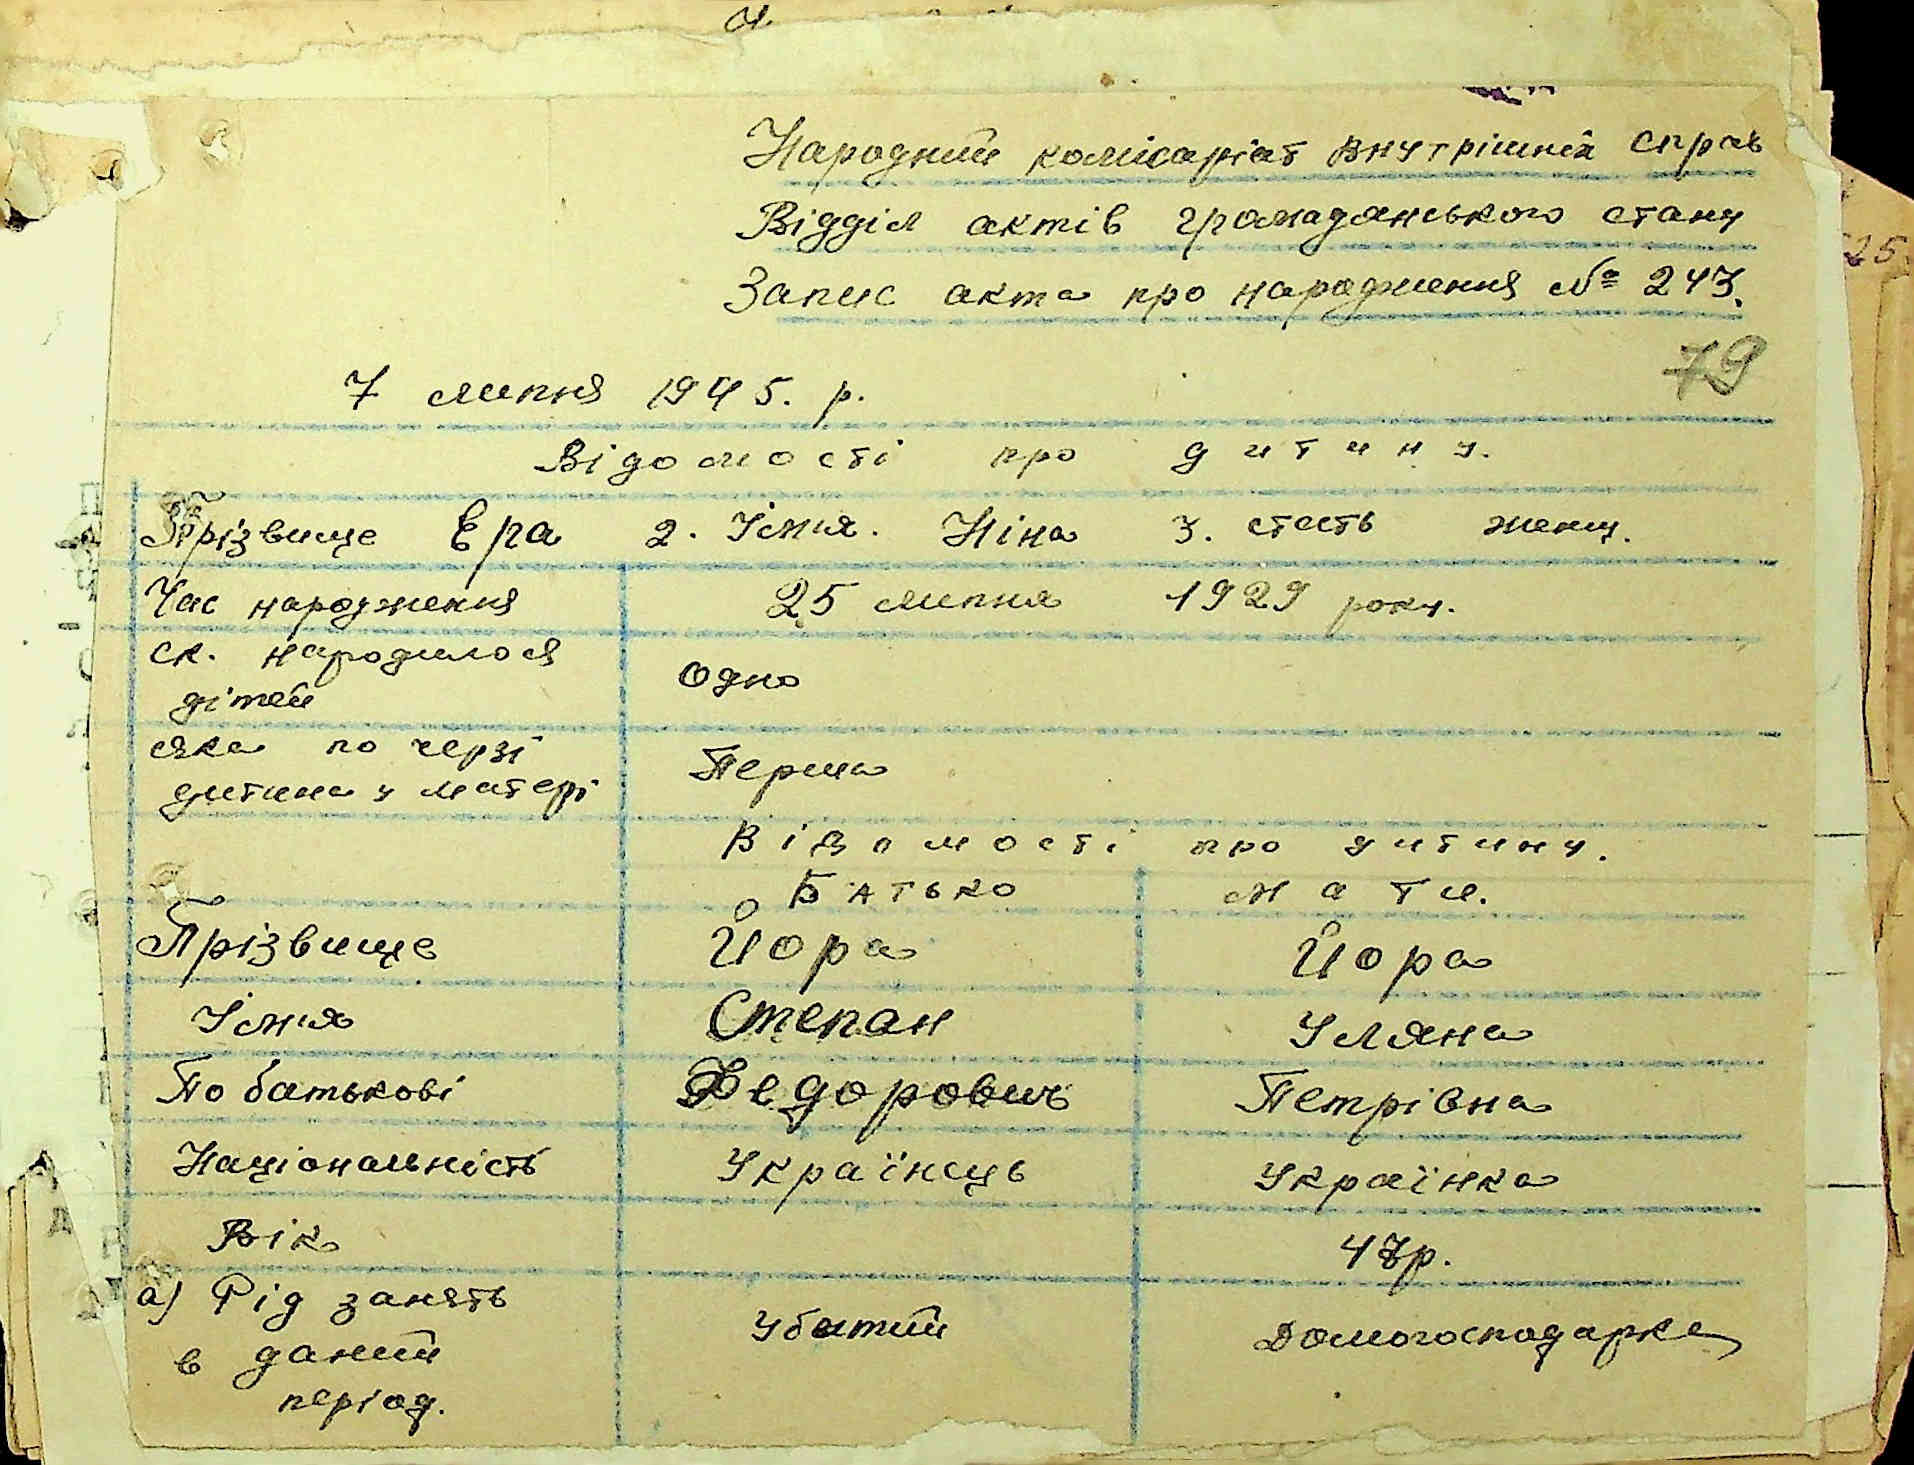 Народний комісаріат внутрішніх справ
Відділ актів громадянського стану
Запис акта про народження № 243.
79
7 липня 1945. р.
Відомості про дитину.
Прізвище Ера 2. Ім'я. Ніна 3. стать жекщ.
Час народження 25 липня 1929 року.
ск. народилося
дітей Одно
яка по черзі
дитина у матері Перша
Відомості про дитину.
Батько Мати.
Прізвище Йора Йора
Ім'я Степан Уляна
По батькові Федорович Петрівна
Національність Українець Українка
Вік 47р.
а) Рід занять
в даний
період. Убитий Домогосподарка
25